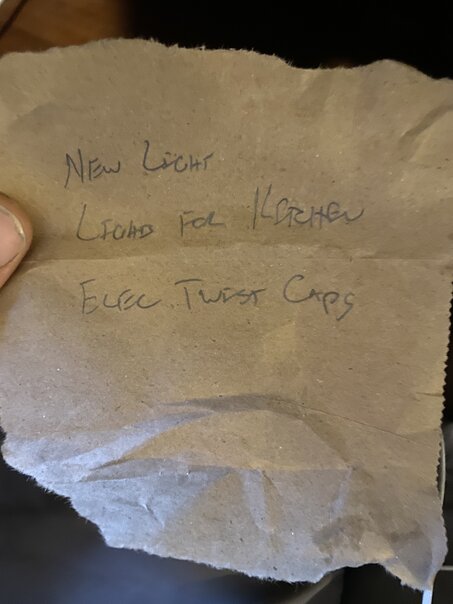 New Light
Light for Kitchen
Elec Twist Caps